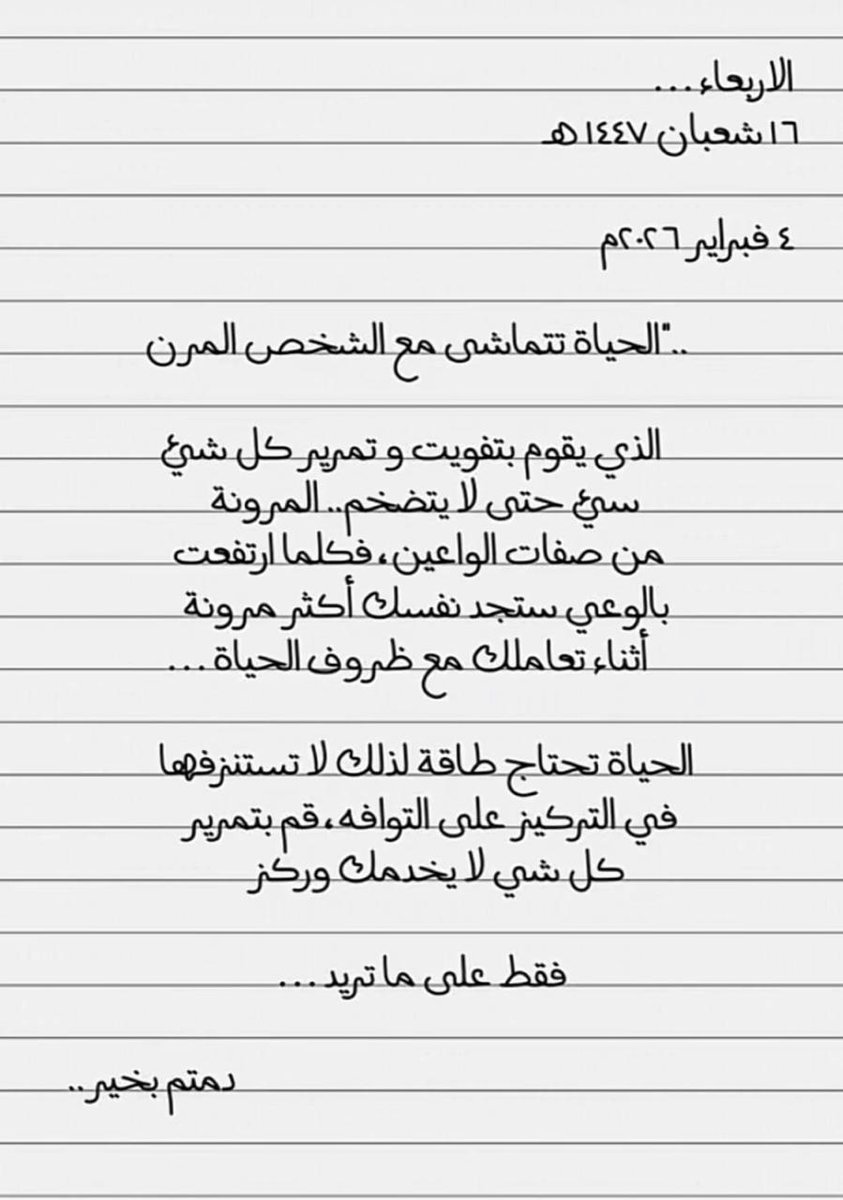 الاربعاء...
١٦ شعبان ١٤٤٧هـ
٤ فبراير ٢٠٢٦م
.."الحياة تتماشى مع الشخص المرن
الذي يقوم بتفويت و تمرير كل شيئ
سيئ حتى لا يتضخم.. المرونة
من صفات الواعين، فكلما ارتفعت
بالوعي ستجد نفسك أكثر مرونة
أثناء تعاملك مع ظروف الحياة ...
الحياة تحتاج طاقة لذلك لا تستنزفها
في التركيز على التوافه، قم بتمرير
كل شي لا يخدمك وركز
فقط على ما تريد ...
دمتم بخير..